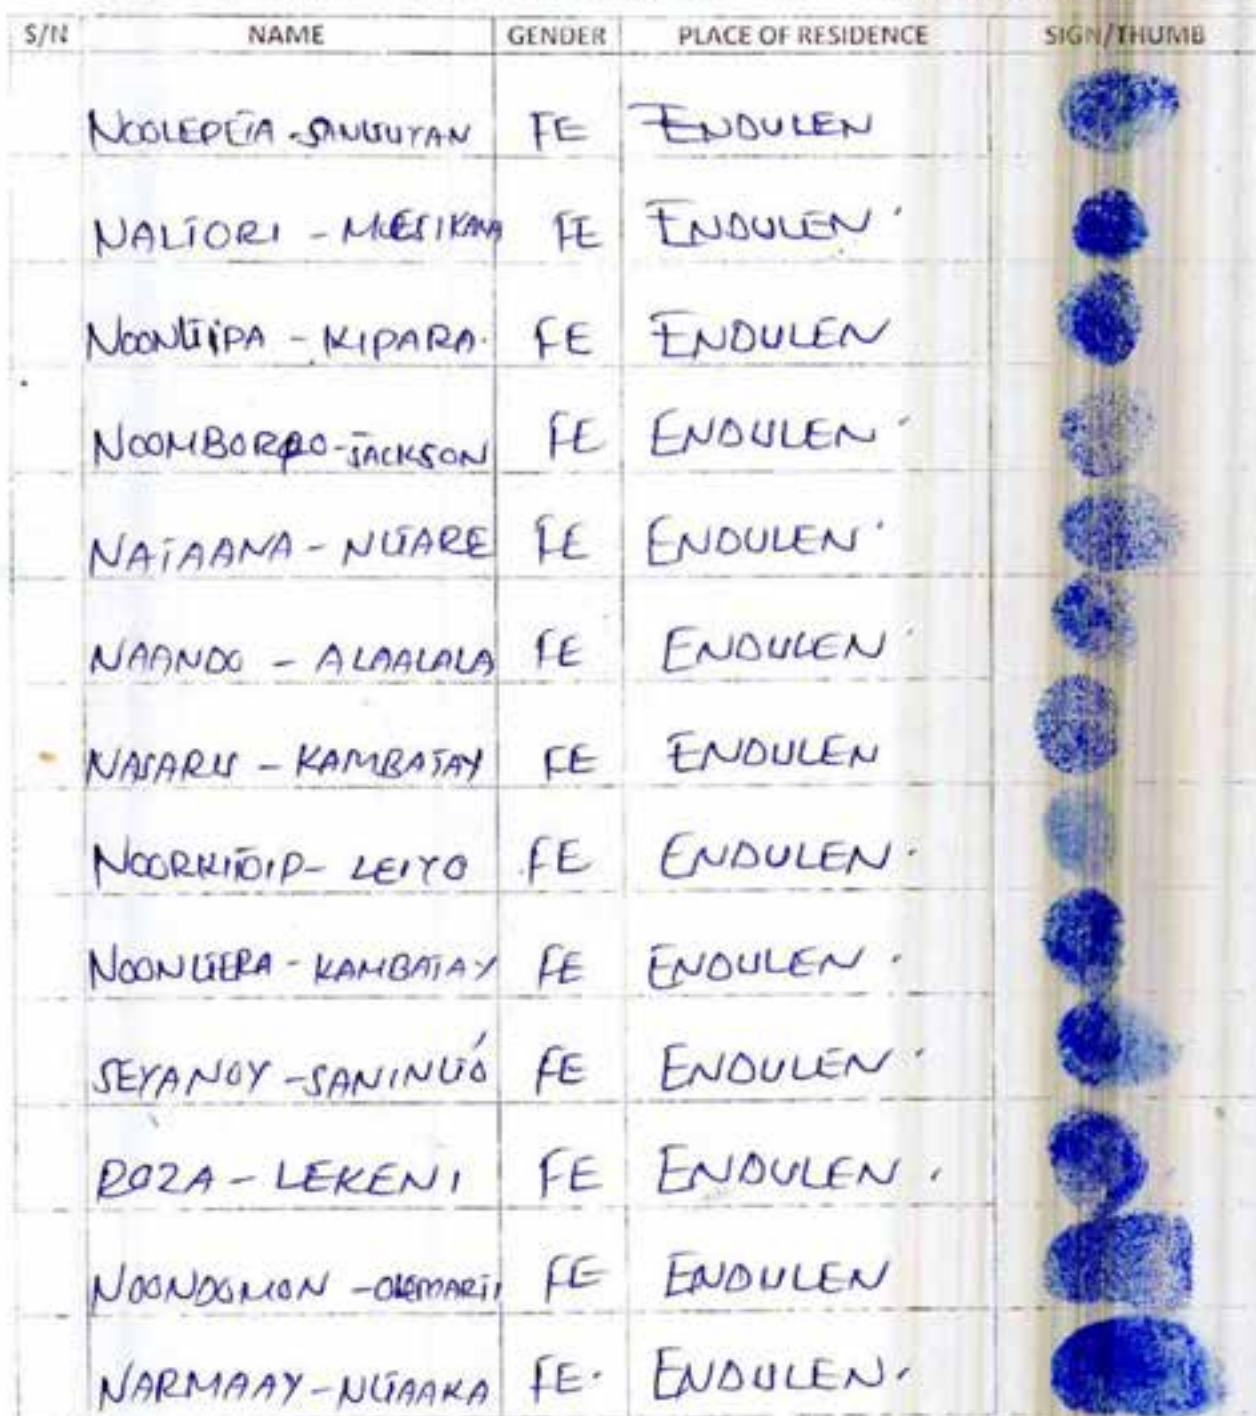 S/N NAME GENDER PLACE OF RESIDENCE SIGN/THUMB
NOOLEPETA - FE ENDULEN
NALTORI - FE ENDULEN
KIPARA. FE ENDULEN
NOOMBORRO - JACKSON FE ENDULEN
NATAANA - FE ENDULEN
NAANDO - ALAALALA FE ENDULEN
NASARU - KAMBATAY FE ENDULEN
LEIYO FE ENDULEN.
KAMBATAY FE ENDULEN.
SEYANOY - FE ENDULEN
ROZA - LEKENI FE ENDULEN.
NOONDOMON - FE ENDULEN
NARMAAY - FE. ENDULEN.